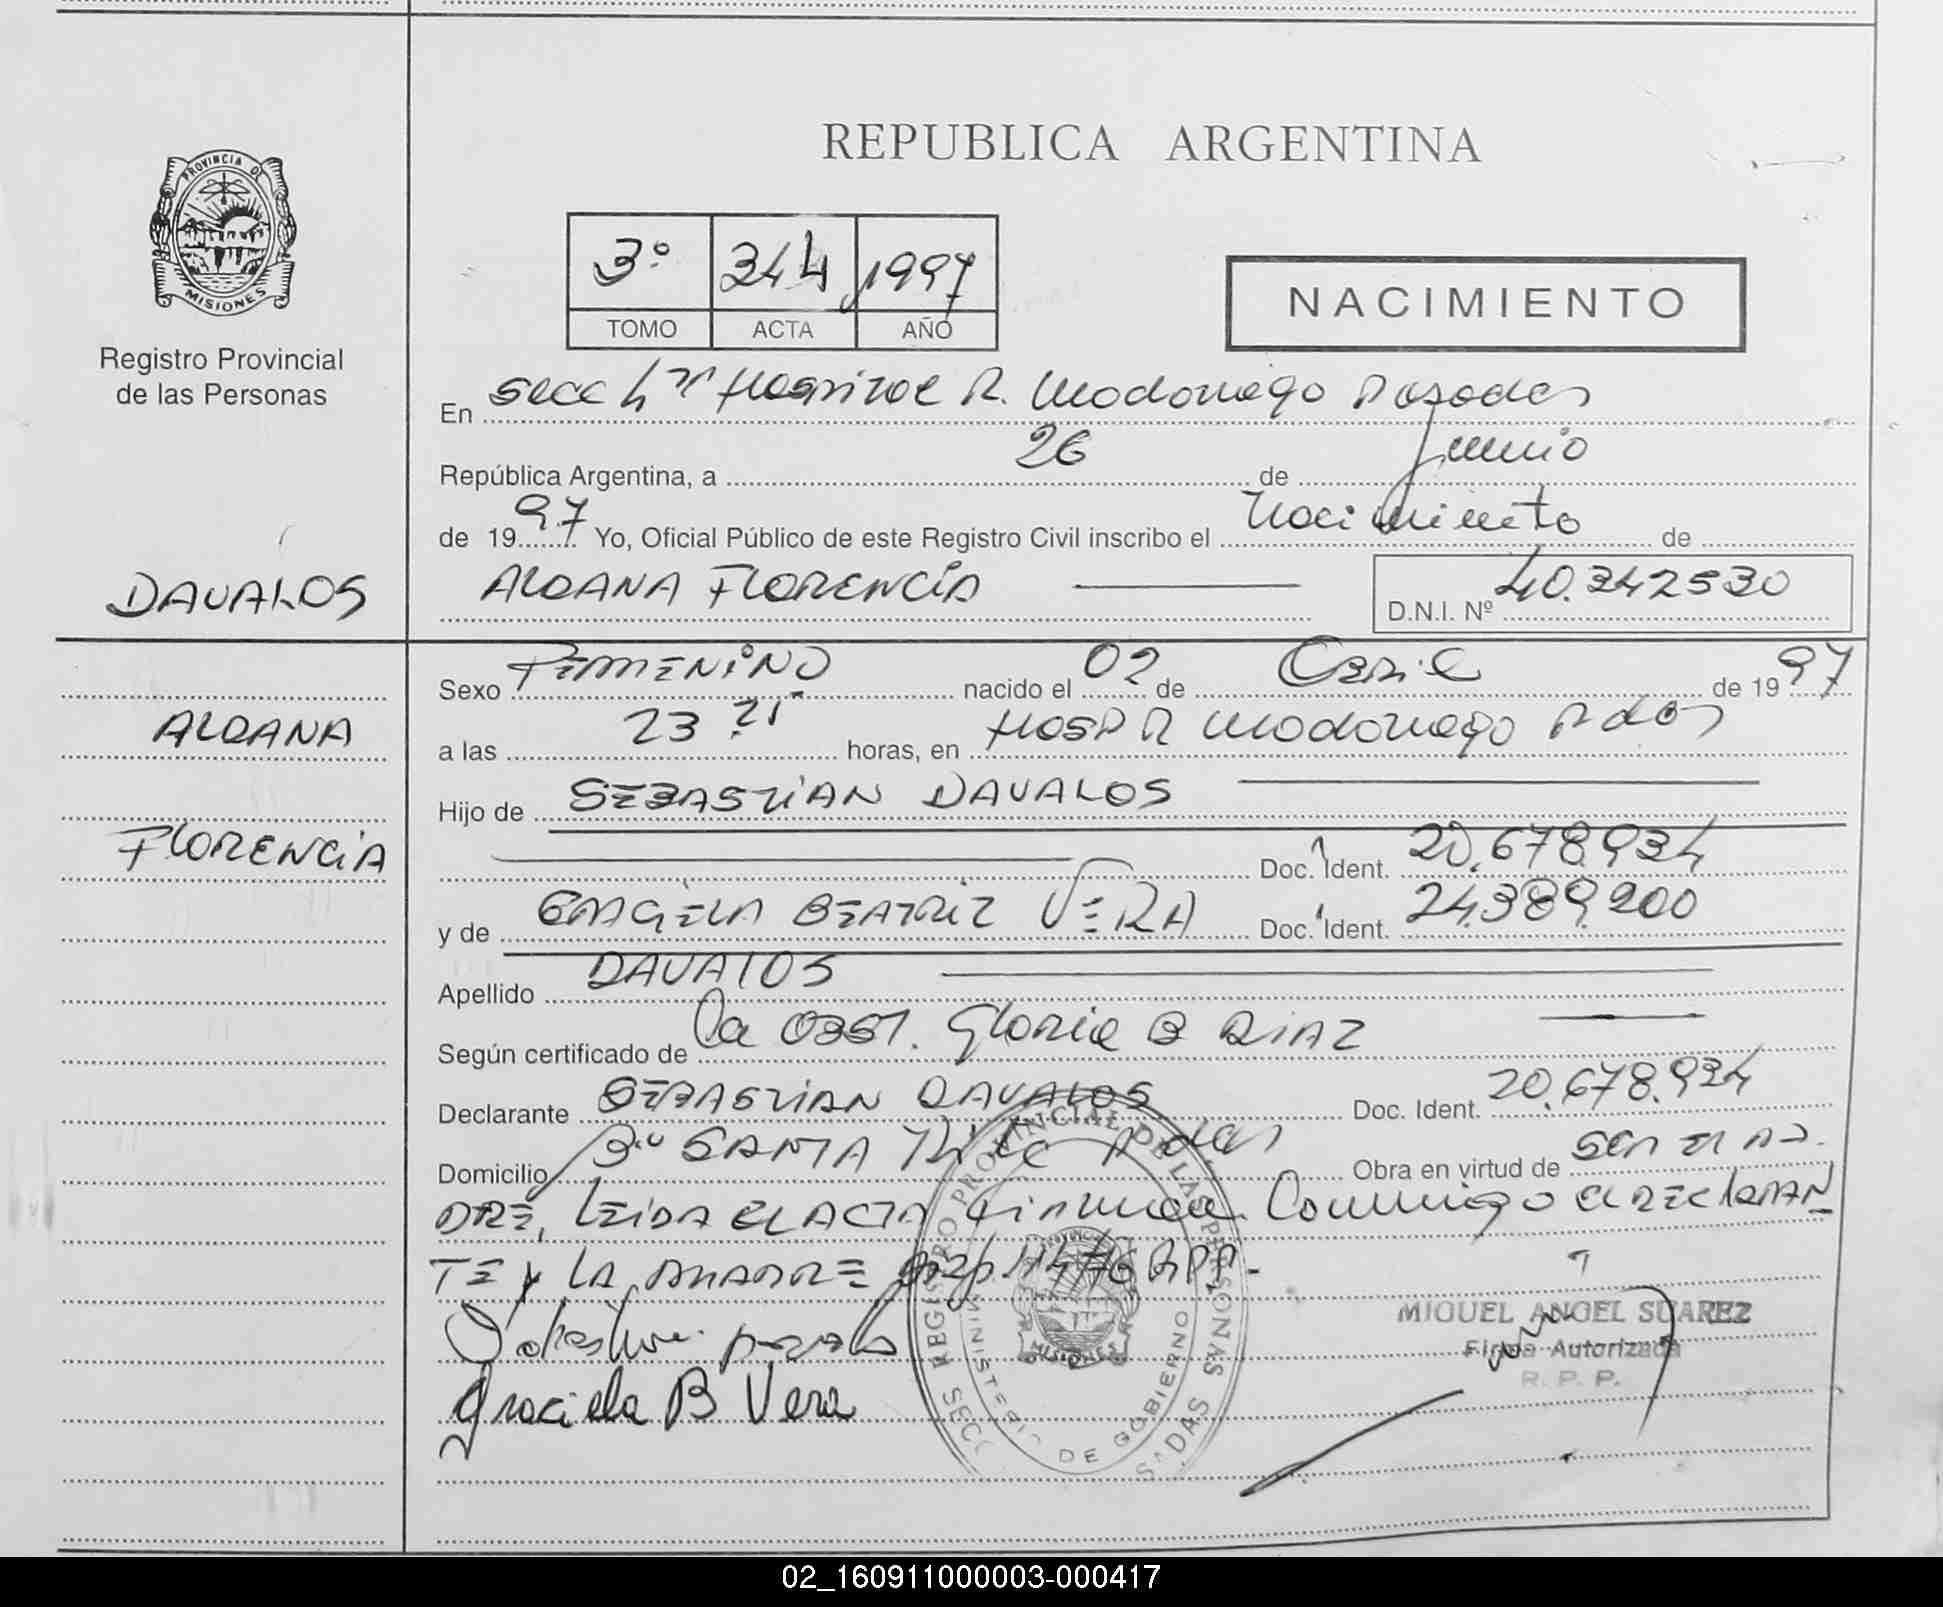 REPUBLICA ARGENTINA
PROVINCIA DE
MISIONES
Registro Provincial
de las Personas
3º 344 1997
TOMO ACTA AÑO
NACIMIENTO
En Secc 4ª Hospital R. Madariaga Posadas
República Argentina, a 26 de Junio
de 1997 Yo, Oficial Público de este Registro Civil inscribo el Nacimiento de
DAVALOS
ALDANA FLORENCIA
D.N.I. Nº 40.342530
ALDANA
FLORENCIA
Sexo FEMENINO nacido el 02 de Abril de 1997
a las 23 21 horas, en HOSP R Madariaga Pdas
Hijo de SEBASTIAN DAVALOS
Doc. Ident. 20.678.934
y de GRACIELA BEATRIZ VERA Doc. Ident. 24.389.200
Apellido DAVALOS
Según certificado de la OBST. Gloria B DIAZ
Declarante SEBASTIAN DAVALOS Doc. Ident. 20.678.934
Domicilio Bº SANTA Rita Pdas Obra en virtud de ser el PA-
DRE, LEIDA EL ACTA firman Conmigo el DECLARAN
TE Y LA MADRE
Graciela B Vera
REGISTRO PROVINCIAL DE LAS PERSONAS
MINISTERIO DE GOBIERNO
MISIONES
MIGUEL ANGEL SUAREZ
Firma Autorizada
R. P. P.
02_160911000003-000417